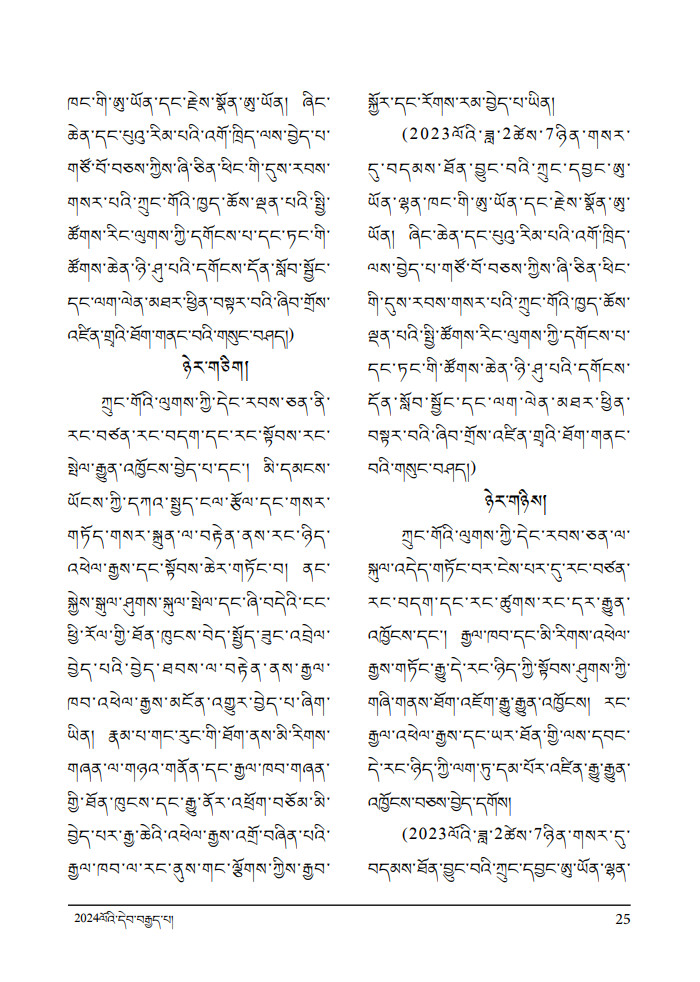 ཁང་གི་ཨུ་ཡོན་དང་རྗེས་སྣོན་ཨུ་ཡོན། ཞིང་
ཆེན་དང་པུའུ་རིམ་པའི་འགོ་ཁྲིད་ལས་བྱེད་པ་
གཙོ་བོ་བཅས་ཀྱིས་ཞི་ཅིན་ཕིང་གི་དུས་རབས་
གསར་པའི་ཀྲུང་གོའི་ཁྱད་ཆོས་ལྡན་པའི་སྤྱི་
ཚོགས་རིང་ལུགས་ཀྱི་དགོངས་པ་དང་ཏང་གི་
ཚོགས་ཆེན་ཉི་ཤུ་པའི་དགོངས་དོན་སློབ་སྦྱོང་
དང་ལག་ལེན་མཐར་ཕྱིན་བསྟར་བའི་ཞིབ་གྲོས་
འཛིན་གྲྭའི་ཐོག་གནང་བའི་གསུང་བཤད།)
ཉེར་གཅིག།
ཀྲུང་གོའི་ལུགས་ཀྱི་དེང་རབས་ཅན་ནི་
རང་བཙན་རང་བདག་དང་རང་སྟོབས་རང་
སྤེལ་རྒྱུན་འཁྱོངས་བྱེད་པ་དང་། མི་དམངས་
ཡོངས་ཀྱི་དཀའ་སྤྱད་ངལ་རྩོལ་དང་གསར་
གཏོད་གསར་སྐྲུན་ལ་བརྟེན་ནས་རང་ཉིད་
འཕེལ་རྒྱས་དང་སྟོབས་ཆེར་གཏོང་བ། ནང་
སྐྱེས་སྒུལ་ཤུགས་སྐུལ་སྤེལ་དང་ཞི་བདེའི་ངང་
ཕྱི་རོལ་གྱི་ཐོན་ཁུངས་བེད་སྤྱོད་ཟུང་འབྲེལ་
བྱེད་པའི་བྱེད་ཐབས་ལ་བརྟེན་ནས་རྒྱལ་
ཁབ་འཕེལ་རྒྱས་མངོན་འགྱུར་བྱེད་པ་ཞིག་
ཡིན། རྣམ་པ་གང་རུང་གི་ཐོག་ནས་མི་རིགས་
གཞན་ལ་གཉའ་གནོན་དང་རྒྱལ་ཁབ་གཞན་
གྱི་ཐོན་ཁུངས་དང་རྒྱུ་ནོར་འཕྲོག་བཅོམ་མི་
བྱེད་པར་རྒྱ་ཆེའི་འཕེལ་རྒྱས་འགྲོ་བཞིན་པའི་
རྒྱལ་ཁབ་ལ་རང་ནུས་གང་ལྕོགས་ཀྱིས་རྒྱབ་
སྐྱོར་དང་རོགས་རམ་བྱེད་པ་ཡིན།
(2023ལོའི་ཟླ་2ཚེས་7ཉིན་གསར་
དུ་བདམས་ཐོན་བྱུང་བའི་ཀྲུང་དབྱང་ཨུ་
ཡོན་ལྷན་ཁང་གི་ཨུ་ཡོན་དང་རྗེས་སྣོན་ཨུ་
ཡོན། ཞིང་ཆེན་དང་པུའུ་རིམ་པའི་འགོ་ཁྲིད་
ལས་བྱེད་པ་གཙོ་བོ་བཅས་ཀྱིས་ཞི་ཅིན་ཕིང་
གི་དུས་རབས་གསར་པའི་ཀྲུང་གོའི་ཁྱད་ཆོས་
ལྡན་པའི་སྤྱི་ཚོགས་རིང་ལུགས་ཀྱི་དགོངས་པ་
དང་ཏང་གི་ཚོགས་ཆེན་ཉི་ཤུ་པའི་དགོངས་
དོན་སློབ་སྦྱོང་དང་ལག་ལེན་མཐར་ཕྱིན་
བསྟར་བའི་ཞིབ་གྲོས་འཛིན་གྲྭའི་ཐོག་གནང་
བའི་གསུང་བཤད།)
ཉེར་གཉིས།
ཀྲུང་གོའི་ལུགས་ཀྱི་དེང་རབས་ཅན་ལ་
སྐུལ་འདེད་གཏོང་བར་ངེས་པར་དུ་རང་བཙན་
རང་བདག་དང་རང་ཚུགས་རང་དར་རྒྱུན་
འཁྱོངས་དང་། རྒྱལ་ཁབ་དང་མི་རིགས་འཕེལ་
རྒྱས་གཏོང་རྒྱུ་དེ་རང་ཉིད་ཀྱི་སྟོབས་ཤུགས་ཀྱི་
གཞི་གནས་ཐོག་འཇོག་རྒྱུ་རྒྱུན་འཁྱོངས། རང་
རྒྱལ་འཕེལ་རྒྱས་དང་ཡར་ཐོན་གྱི་ལས་དབང་
དེ་རང་ཉིད་ཀྱི་ལག་ཏུ་དམ་པོར་འཛིན་རྒྱུ་རྒྱུན་
འཁྱོངས་བཅས་བྱེད་དགོས།
(2023ལོའི་ཟླ་2ཚེས་7ཉིན་གསར་དུ་
བདམས་ཐོན་བྱུང་བའི་ཀྲུང་དབྱང་ཨུ་ཡོན་ལྷན་
2024ལོའི་དེབ་བརྒྱད་པ།
25